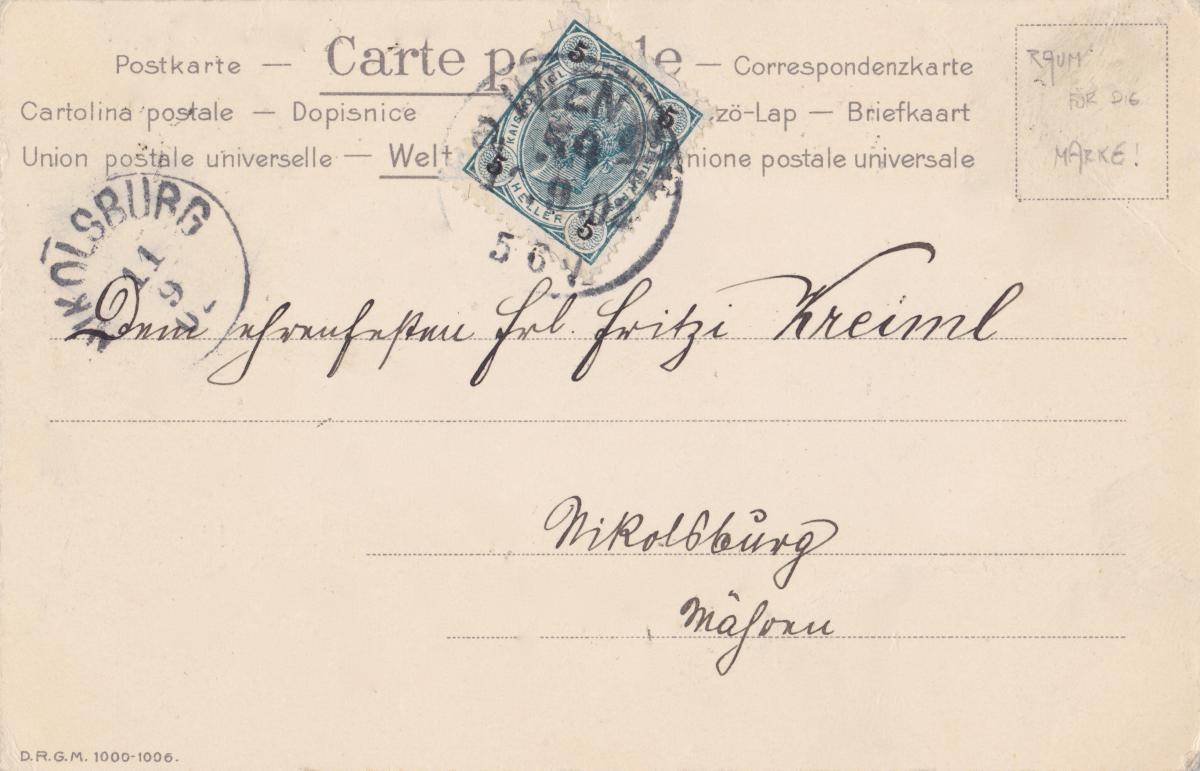 Postkarte — Carte — Correspondenzkarte
Cartolina postale — Dopisnice zö-Lap — Briefkaart
Union postale universelle — Welt nione postale universale
RAUM
FÜR DIE
MARKE!
5 5 5 5
HELLER
WIEN
5 9
NIKOLSBURG
11
9
Dem ehrenfesten Frl. Fritzi Kreiml
Nikolsburg
Mähren
D.R.G.M. 1000-1006.